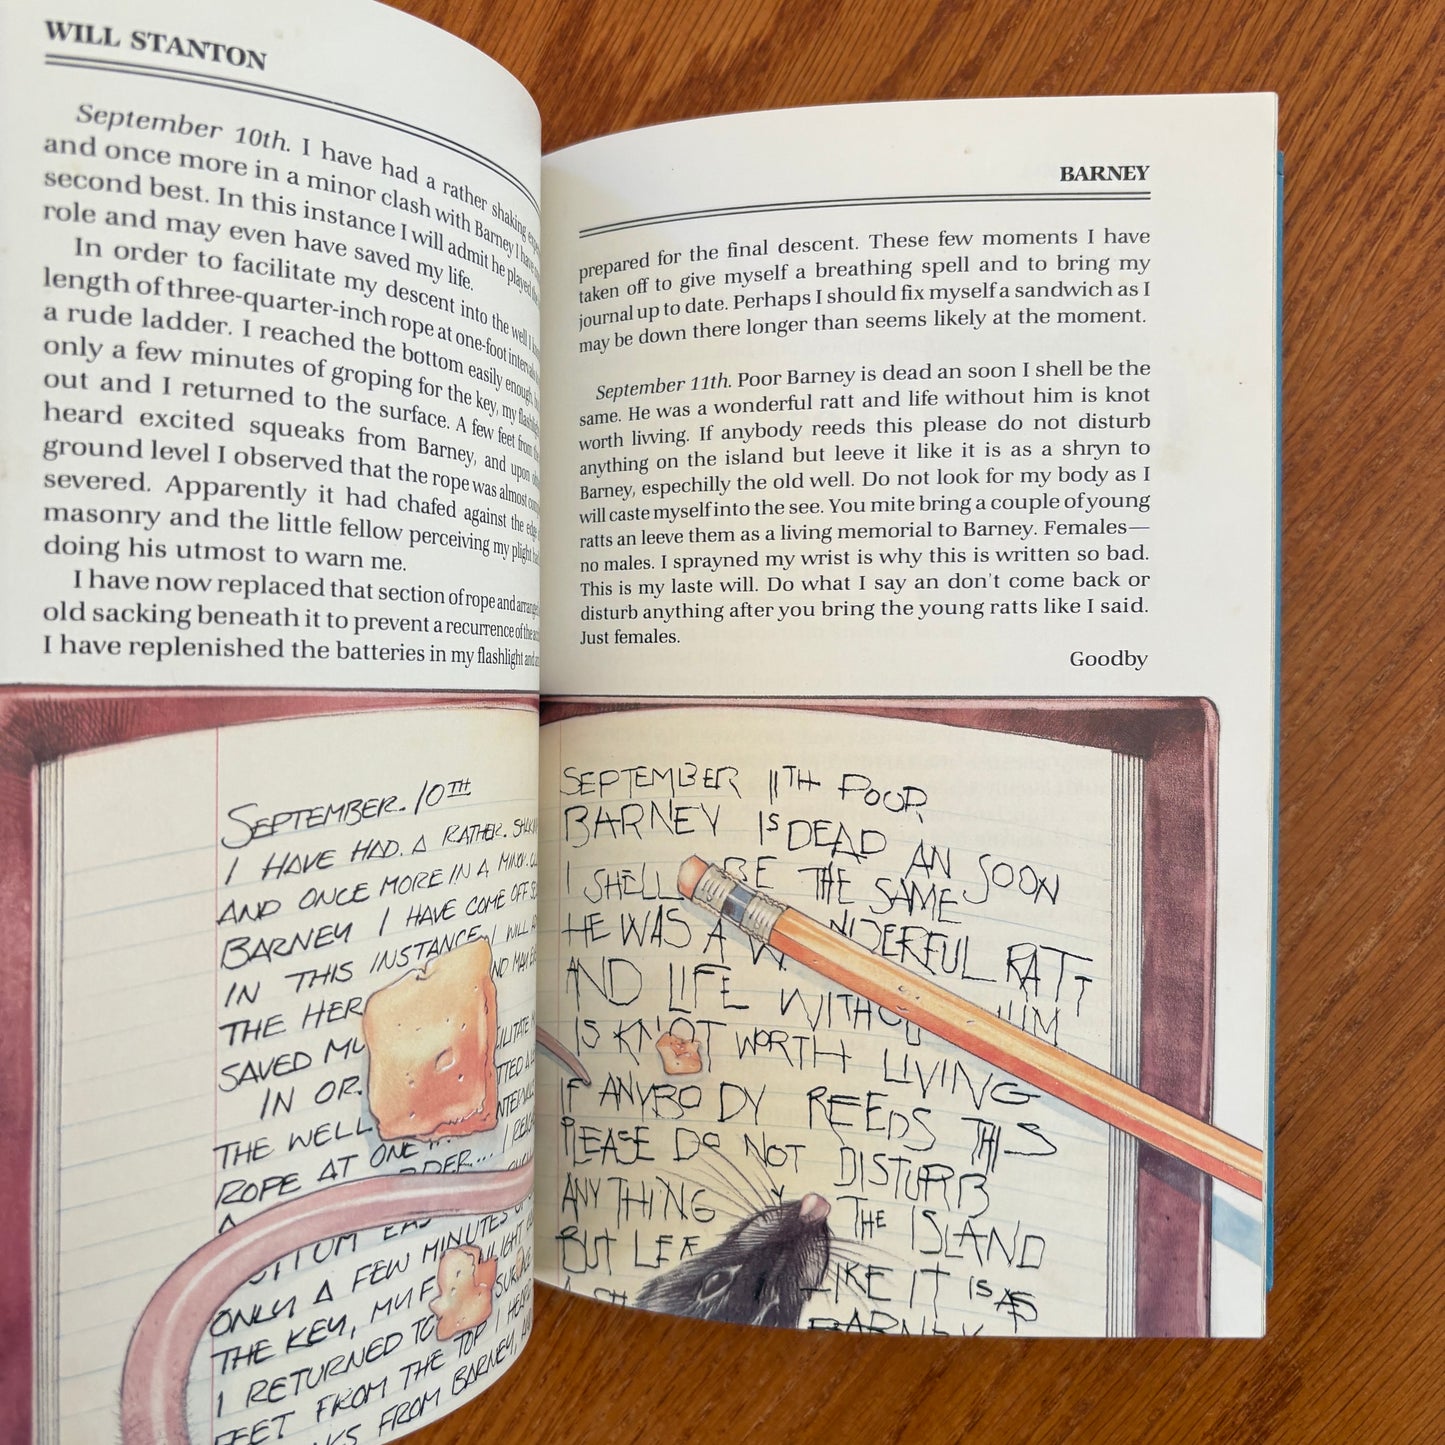 WILL STANTON
September 10th. I have had a rather shaking
and once more in a minor clash with Barney I have
second best. In this instance I will admit he played the
role and may even have saved my life.
In order to facilitate my descent into the well I
length of three-quarter-inch rope at one-foot intervals
a rude ladder. I reached the bottom easily enough,
only a few minutes of groping for the key, my flashlight
out and I returned to the surface. A few feet from the
heard excited squeaks from Barney, and upon
ground level I observed that the rope was almost
severed. Apparently it had chafed against the edge
masonry and the little fellow perceiving my plight
doing his utmost to warn me.
I have now replaced that section of rope and arranged
old sacking beneath it to prevent a recurrence of the
I have replenished the batteries in my flashlight and
SEPTEMBER. 10TH
I HAVE HAD. A RATHER.
AND ONCE MORE IN A MINOR.
BARNEY I HAVE COME OFF
IN THIS INSTANCE I WILL
THE HER
SAVED MY
IN OR
THE WELL
ROPE AT ONE
A FEW MINUTES
ONLY A FEW MINUTES
THE KEY, MY F
I RETURNED TO
FEET FROM THE TOP I
FROM BARNEY,
BARNEY
prepared for the final descent. These few moments I have
taken off to give myself a breathing spell and to bring my
journal up to date. Perhaps I should fix myself a sandwich as I
may be down there longer than seems likely at the moment.
September 11th. Poor Barney is dead an soon I shell be the
same. He was a wonderful ratt and life without him is knot
worth livving. If anybody reeds this please do not disturb
anything on the island but leeve it like it is as a shryn to
Barney, espechilly the old well. Do not look for my body as I
will caste myself into the see. You mite bring a couple of young
ratts an leeve them as a living memorial to Barney. Females—
no males. I sprayned my wrist is why this is written so bad.
This is my laste will. Do what I say an don't come back or
disturb anything after you bring the young ratts like I said.
Just females.
Goodby
SEPTEMBER 11TH POOR
BARNEY IS DEAD AN SOON
I SHELL BE THE SAME
HE WAS A W NDERFUL RATT
AND LIFE WITHOU HIM
IS KNOT WORTH LIVING
IF ANYBODY REEDS THIS
PLEASE DO NOT DISTURB
ANYTHING THE ISLAND
BUT LEE IKE IT IS AS
BARNEY